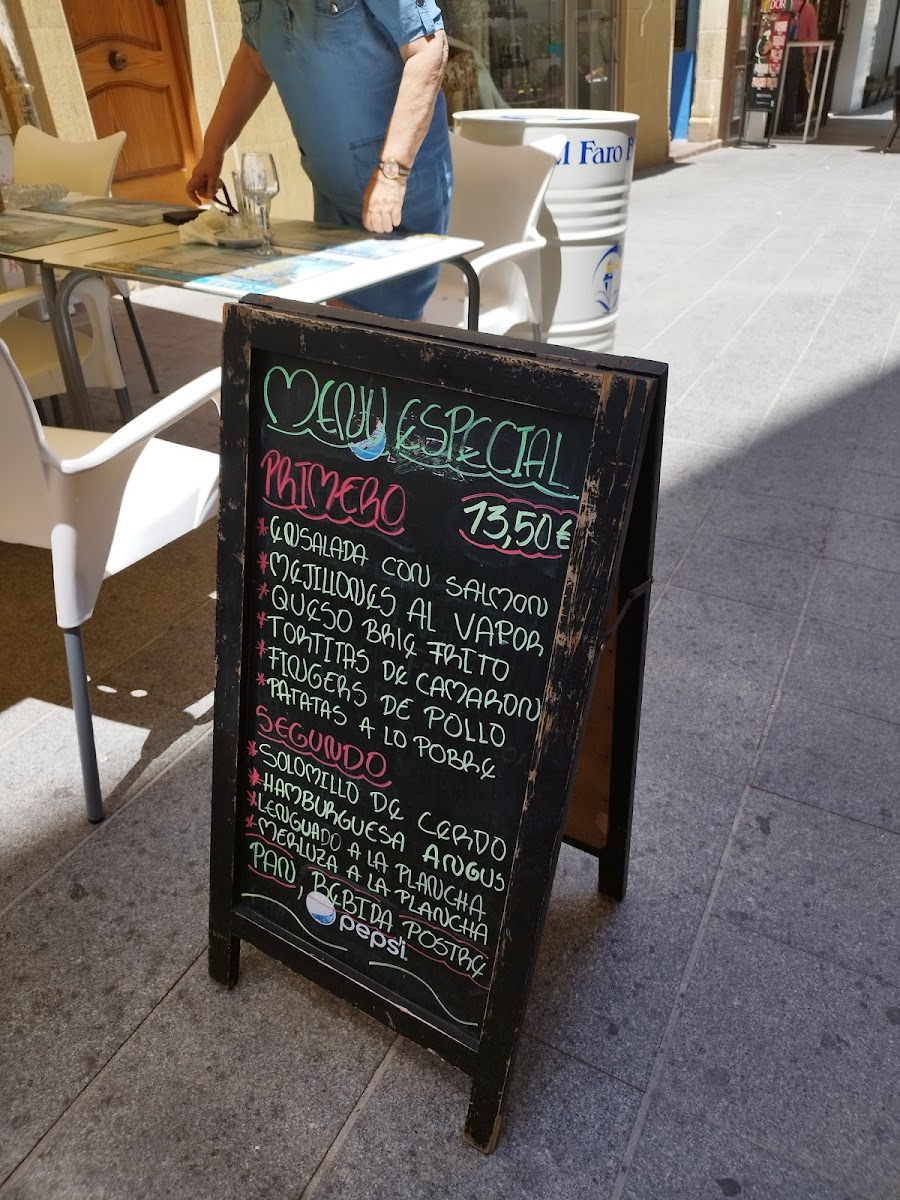 M Faro
MENU ESPECIAL
PRIMERO 13,50€
*ENSALADA CON SALMON
*MEJILLONES AL VAPOR
*QUESO BRIE FRITO
*TORTITAS DE CAMARON
*FINGERS DE POLLO
*PATATAS A LO POBRE
SEGUNDO
*SOLOMILLO DE CERDO
*HAMBURGUESA ANGUS
*LENGUADO A LA PLANCHA
*MERLUZA A LA PLANCHA
PAN, BEBIDA POSTRE
pepsi